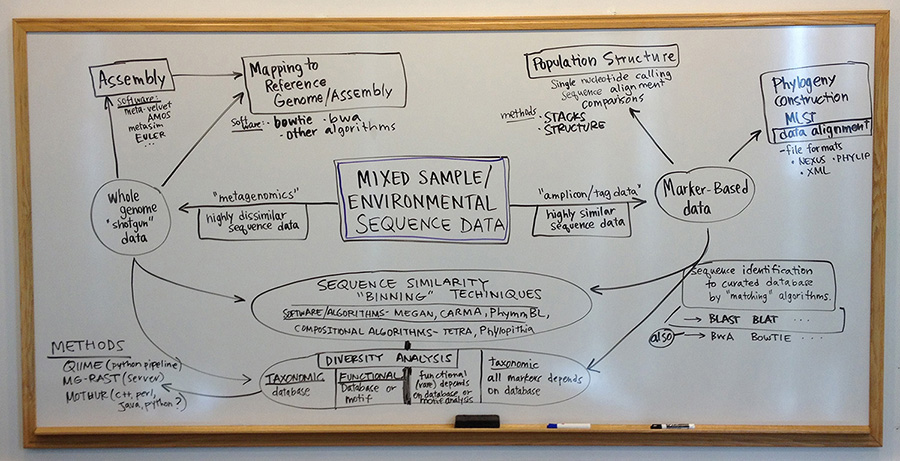 Assembly
software:
meta-velvet
AMOS
metasim
EULER
...
Mapping to
Reference
Genome/Assembly
Software: • bowtie • bwa
• other algorithms
Population Structure
Single nucleotide calling
sequence alignment
comparisons
methods • STACKS
• STRUCTURE
Phylogeny
construction
MLST
data alignment
- file formats
• NEXUS • PHYLIP
• XML
Whole
genome
"shotgun"
data
"metagenomics"
highly dissimilar
sequence data
MIXED SAMPLE/
ENVIRONMENTAL
SEQUENCE DATA
"amplicon/tag data"
highly similar
sequence data
Marker-Based
data
SEQUENCE SIMILARITY
"BINNING" TECHNIQUES
SOFTWARE/ALGORITHMS- MEGAN, CARMA, PhymmBL,
COMPOSITIONAL ALGORITHMS- TETRA, Phylopithia
sequence identification
to curated database
by "matching" algorithms.
→ BLAST BLAT ...
also → BWA BOWTIE ...
METHODS
QIIME (python pipeline)
MG-RAST (server)
MOTHUR (C++, perl,
java, python?)
DIVERSITY ANALYSIS
TAXONOMIC
database
FUNCTIONAL
Database or
motif
functional
(rare) depends
on database or
motif analysis
taxonomic
all markers depends
on database